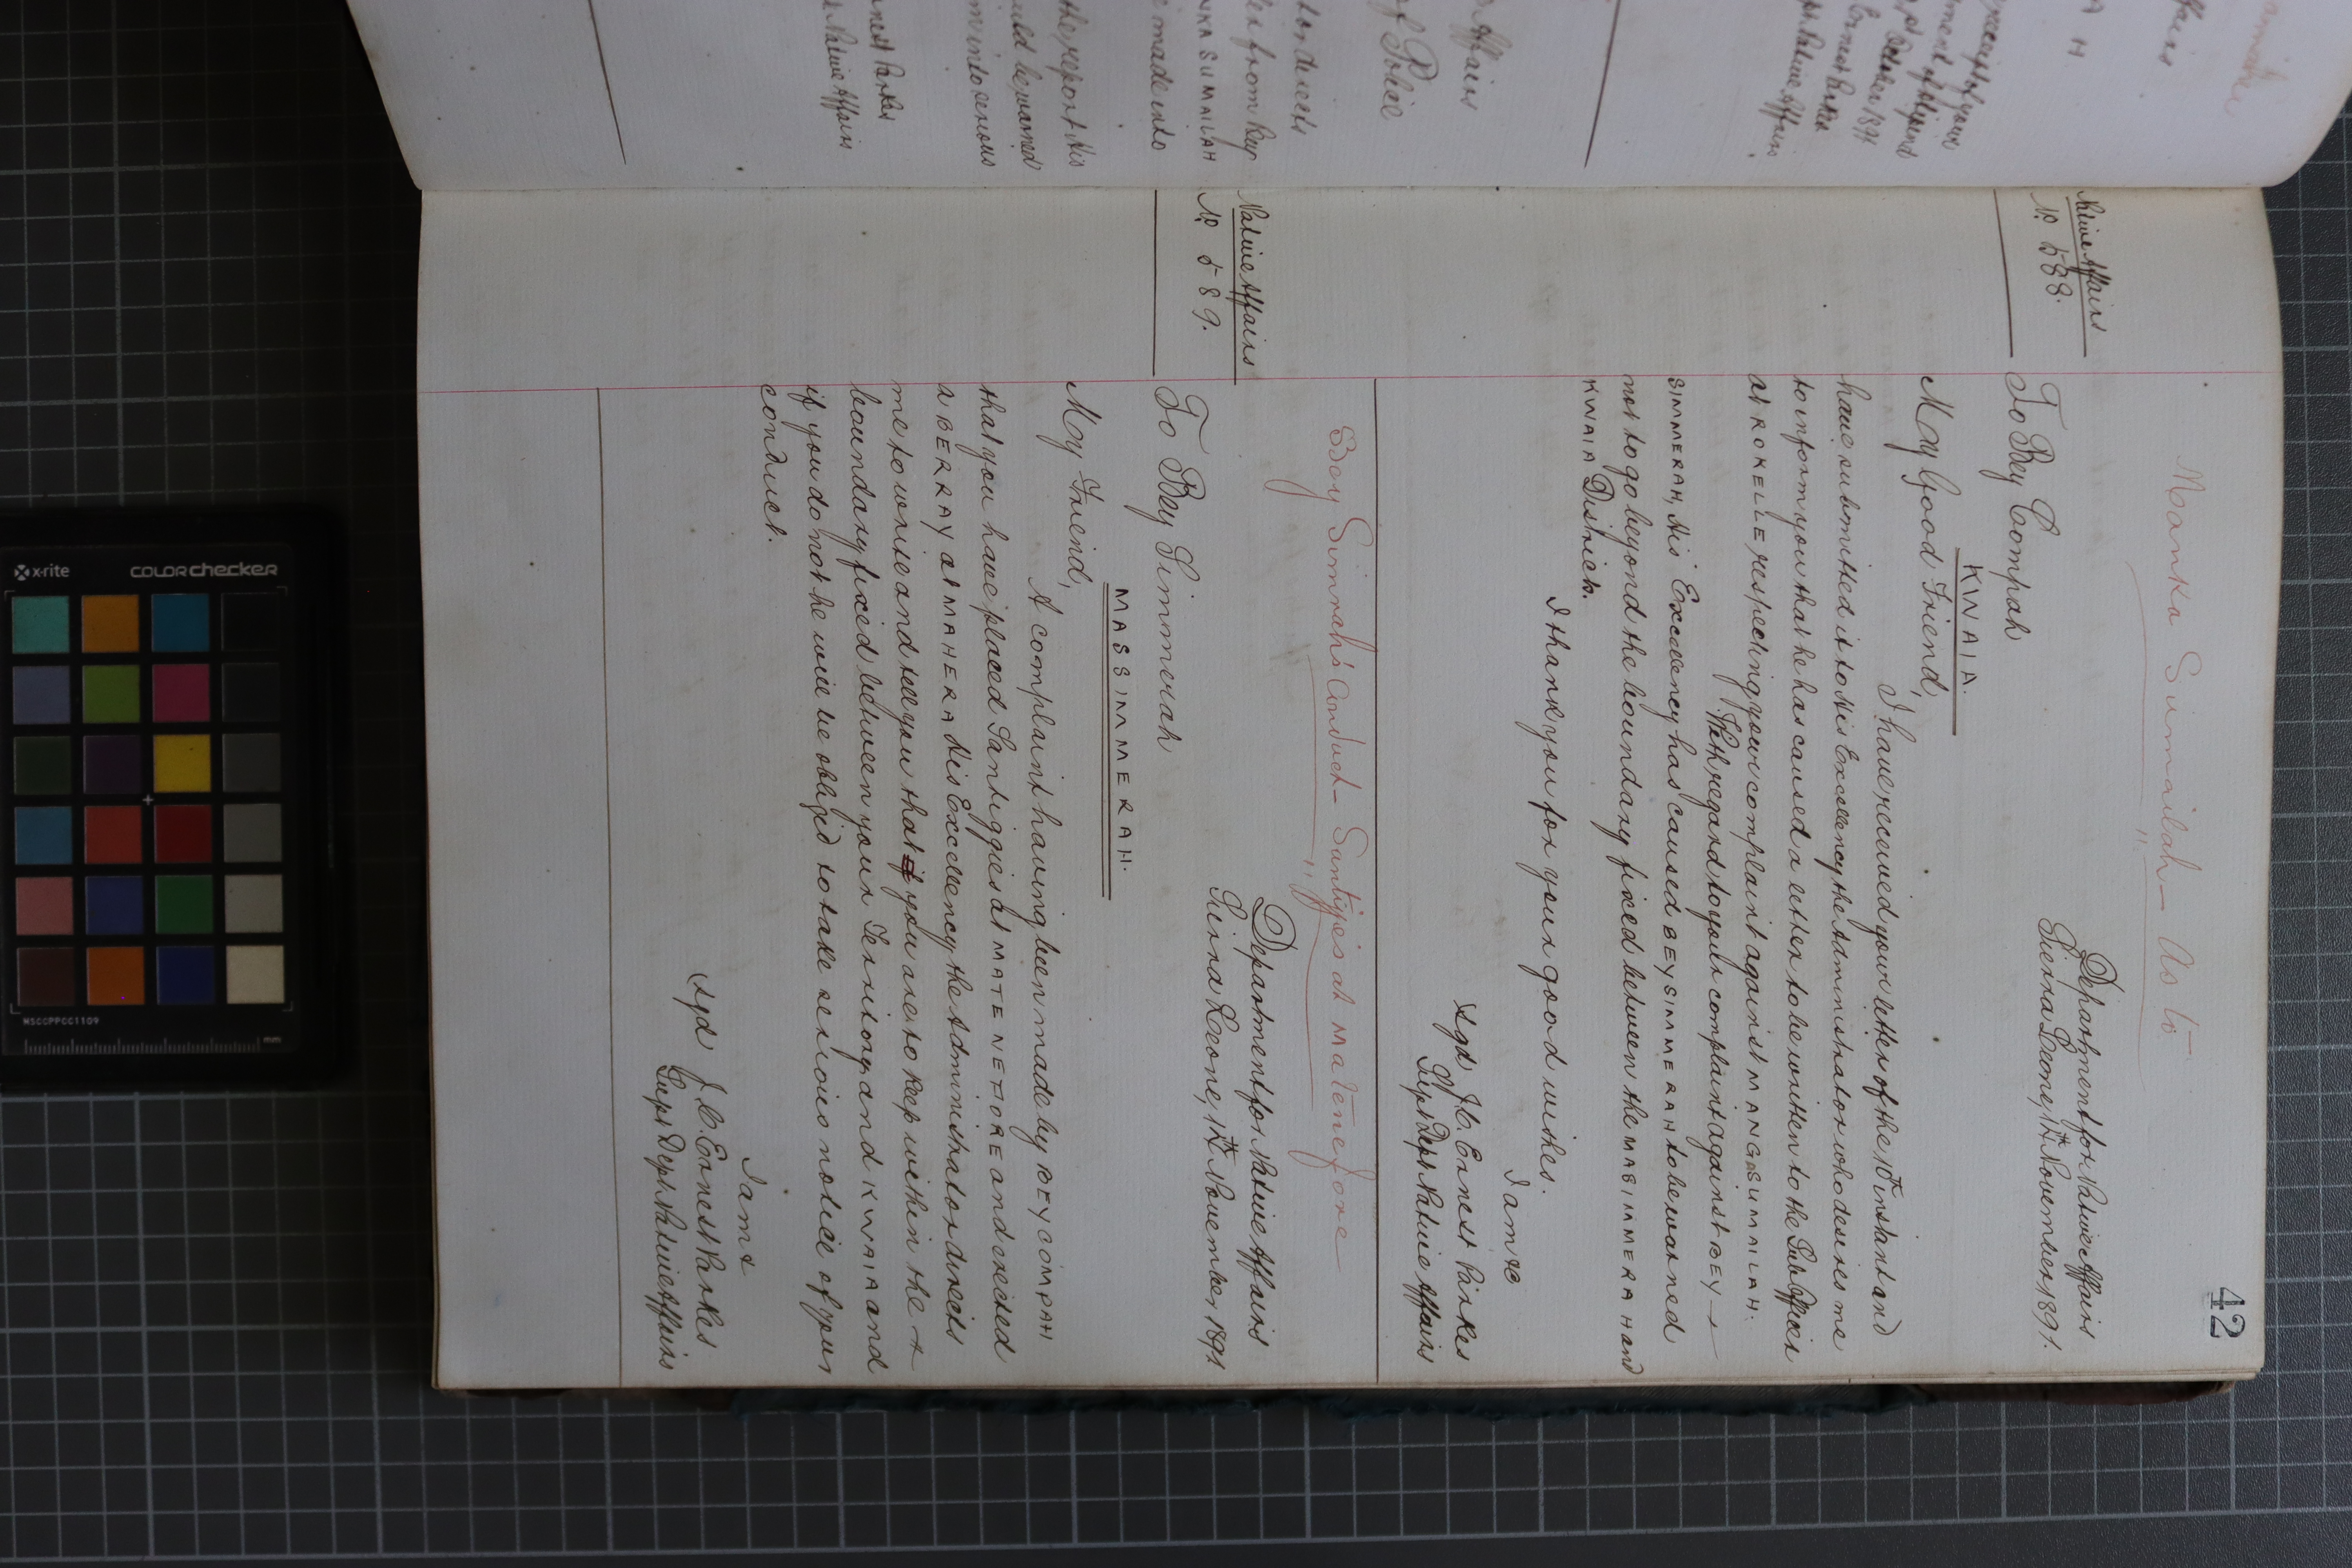 42
Manka Sumailah — As to
Native Affairs
No 588.
Department for Native Affairs
Sierra Leone, 12th November 1891.
To Bey Compah
KWAIA.
My Good Friend,
I have received your letter of the 10th instant and
have submitted it to His Excellency the Administrator who desires me
to inform you that he has caused a letter to be written to the Sub Officer
at ROKELLE, respecting your complaint against MANGASUMAILAH.
With regard to your complaint against BEY
SIMMERAH, His Excellency has caused BEY SIMMERAH to be warned
not to go beyond the boundary fixed between the MASIMMERAH and
KWAIA District.
I thank you for your good wishes.
I am &c
sgd J.C. Ernest Parkes
Supt Dept Native Affairs
Bey Simrah's Conduct — Santiggies at Matenefore
Native Affairs
No 589.
Department for Native Affairs
Sierra Leone, 12th November 1891
To Bey Simmerah
MASSIMMERAH.
My Friend,
A complaint having been made by BEY COMPAH
that you have placed Santiggies at MATENEFORE and erected
a BERRAY at MAHERA His Excellency the Administrator directs
me to write and tell you that if you are to keep within the
boundary fixed between your Territory and KWAIA and
if you do not he will be obliged to take serious notice of your
conduct.
I am &
sgd J.C. Ernest Parkes
Supt Dept Native Affairs